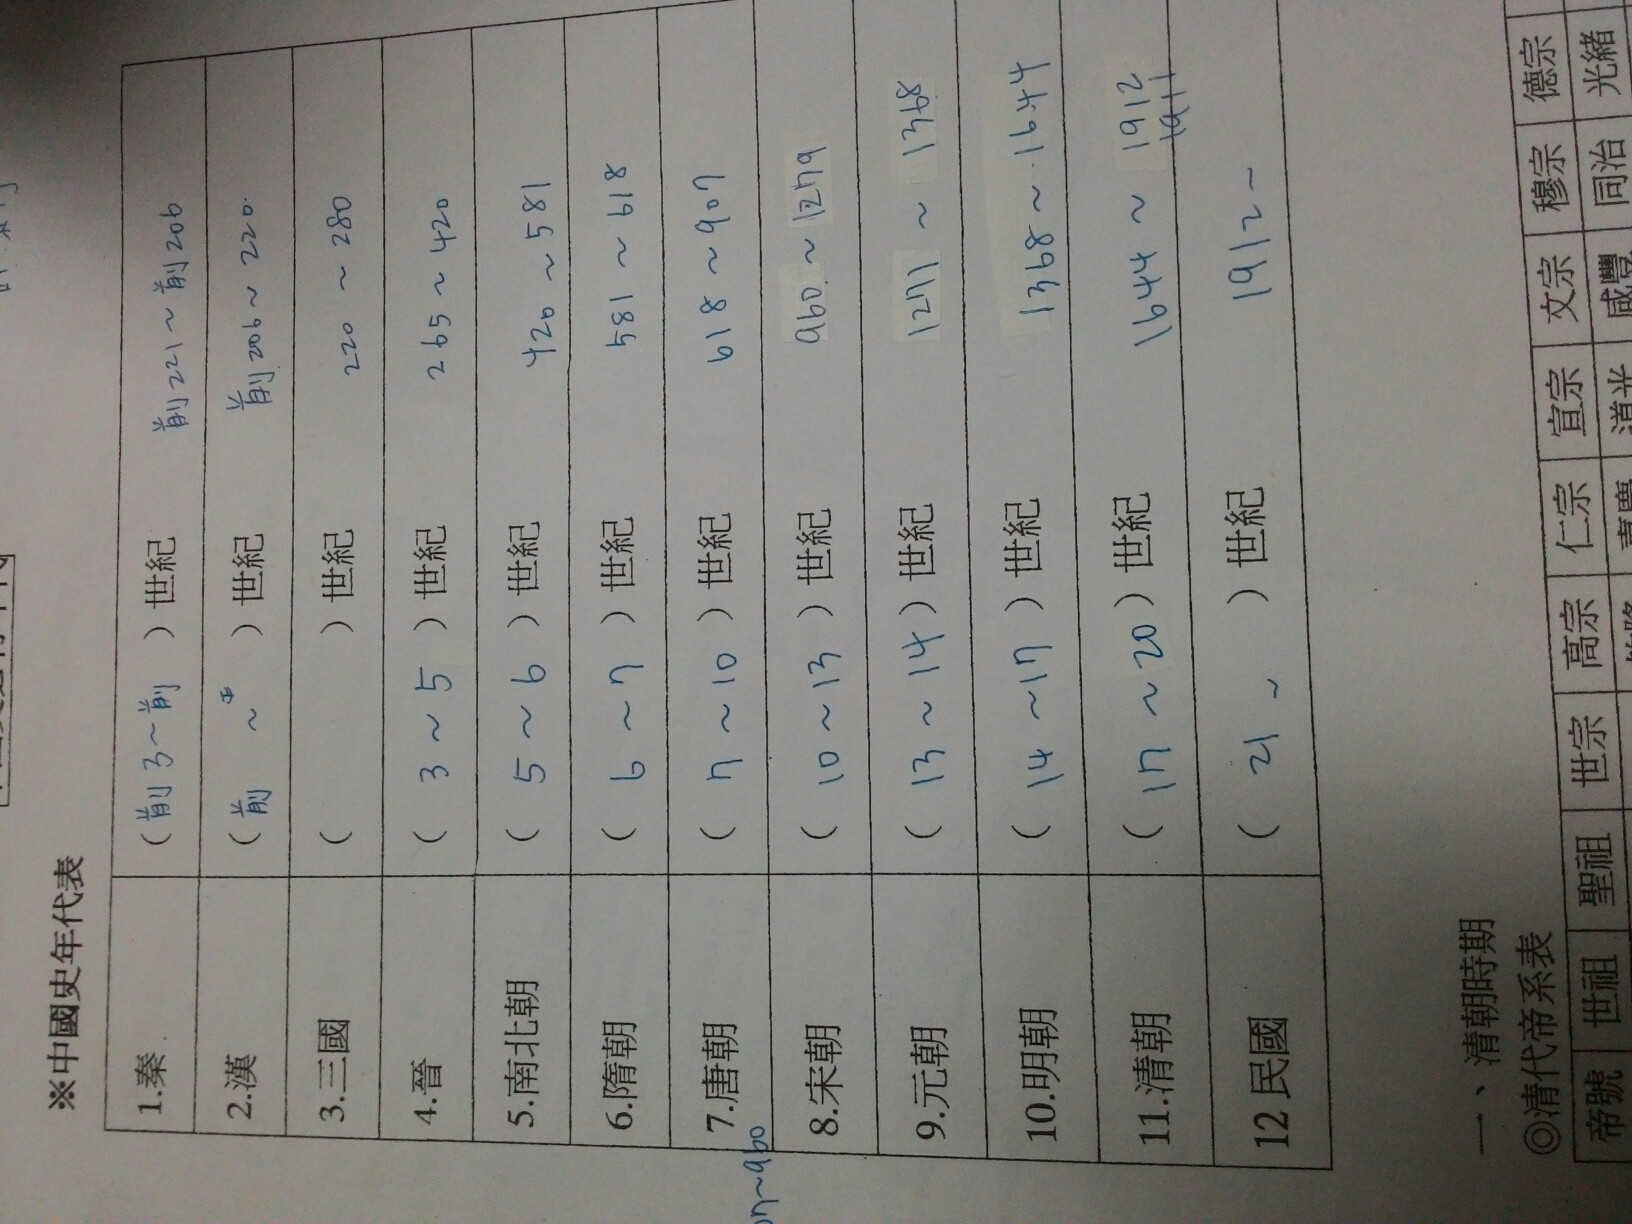 ※中國史年代表
1.秦 (前3～前 )世紀 前221～前206
2.漢 (前 ～ )世紀 前206～220
3.三國 ( )世紀 220～280
4.晉 ( 3～5 )世紀 265～420
5.南北朝 ( 5～6 )世紀 420～581
6.隋朝 ( 6～7 )世紀 581～618
7.唐朝 ( 7～10 )世紀 618～907
～960
8.宋朝 ( 10～13 )世紀 960～1279
9.元朝 ( 13～14 )世紀 1271～1368
10.明朝 ( 14～17 )世紀 1368～1644
11.清朝 ( 17～20 )世紀 1644～1912
1911
12民國 ( 21～ )世紀 1912-
一、清朝時期
◎清代帝系表
帝號 世祖 聖祖 世宗 高宗 仁宗 宣宗 文宗 穆宗 德宗
道光 咸豐 同治 光緒